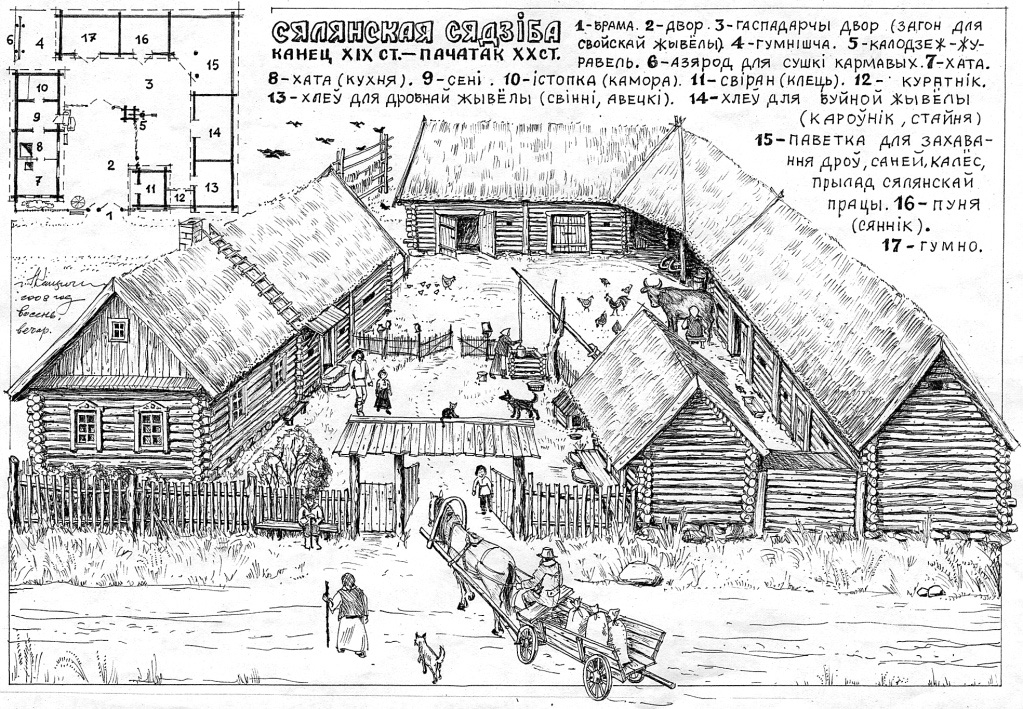 СЯЛЯНСКАЯ СЯДЗІБА
КАНЕЦ XIX СТ.— ПАЧАТАК XX СТ.
1-БРАМА. 2-ДВОР. 3-ГАСПАДАРЧЫ ДВОР (ЗАГОН ДЛЯ
СВОЙСКАЙ ЖЫВЁЛЫ) 4-ГУМНІШЧА. 5-КАЛОДЗЕЖ-ЖУ-
РАВЕЛЬ. 6-АЗЯРОД ДЛЯ СУШКІ КАРМАВЫХ. 7-ХАТА.
8-ХАТА (КУХНЯ). 9-СЕНІ. 10-ІСТОПКА (КАМОРА). 11-СВІРАН (КЛЕЦЬ). 12- КУРАТНІК.
13-ХЛЕЎ ДЛЯ ДРОБНАЙ ЖЫВЁЛЫ (СВІННІ, АВЕЧКІ). 14-ХЛЕЎ ДЛЯ БУЙНОЙ ЖЫВЁЛЫ
(КАРОЎНІК, СТАЙНЯ)
15-ПАВЕТКА ДЛЯ ЗАХАВА-
ННЯ ДРОЎ, САНЕЙ, КАЛЁС,
ПРЫЛАД СЯЛЯНСКАЙ
ПРАЦЫ. 16-ПУНЯ
(СЯННІК).
17-ГУМНО.
6 4 17 16
15
3
10
9
5
8
14
2
7
11
13
12
1
2008 год
восень
вечар.